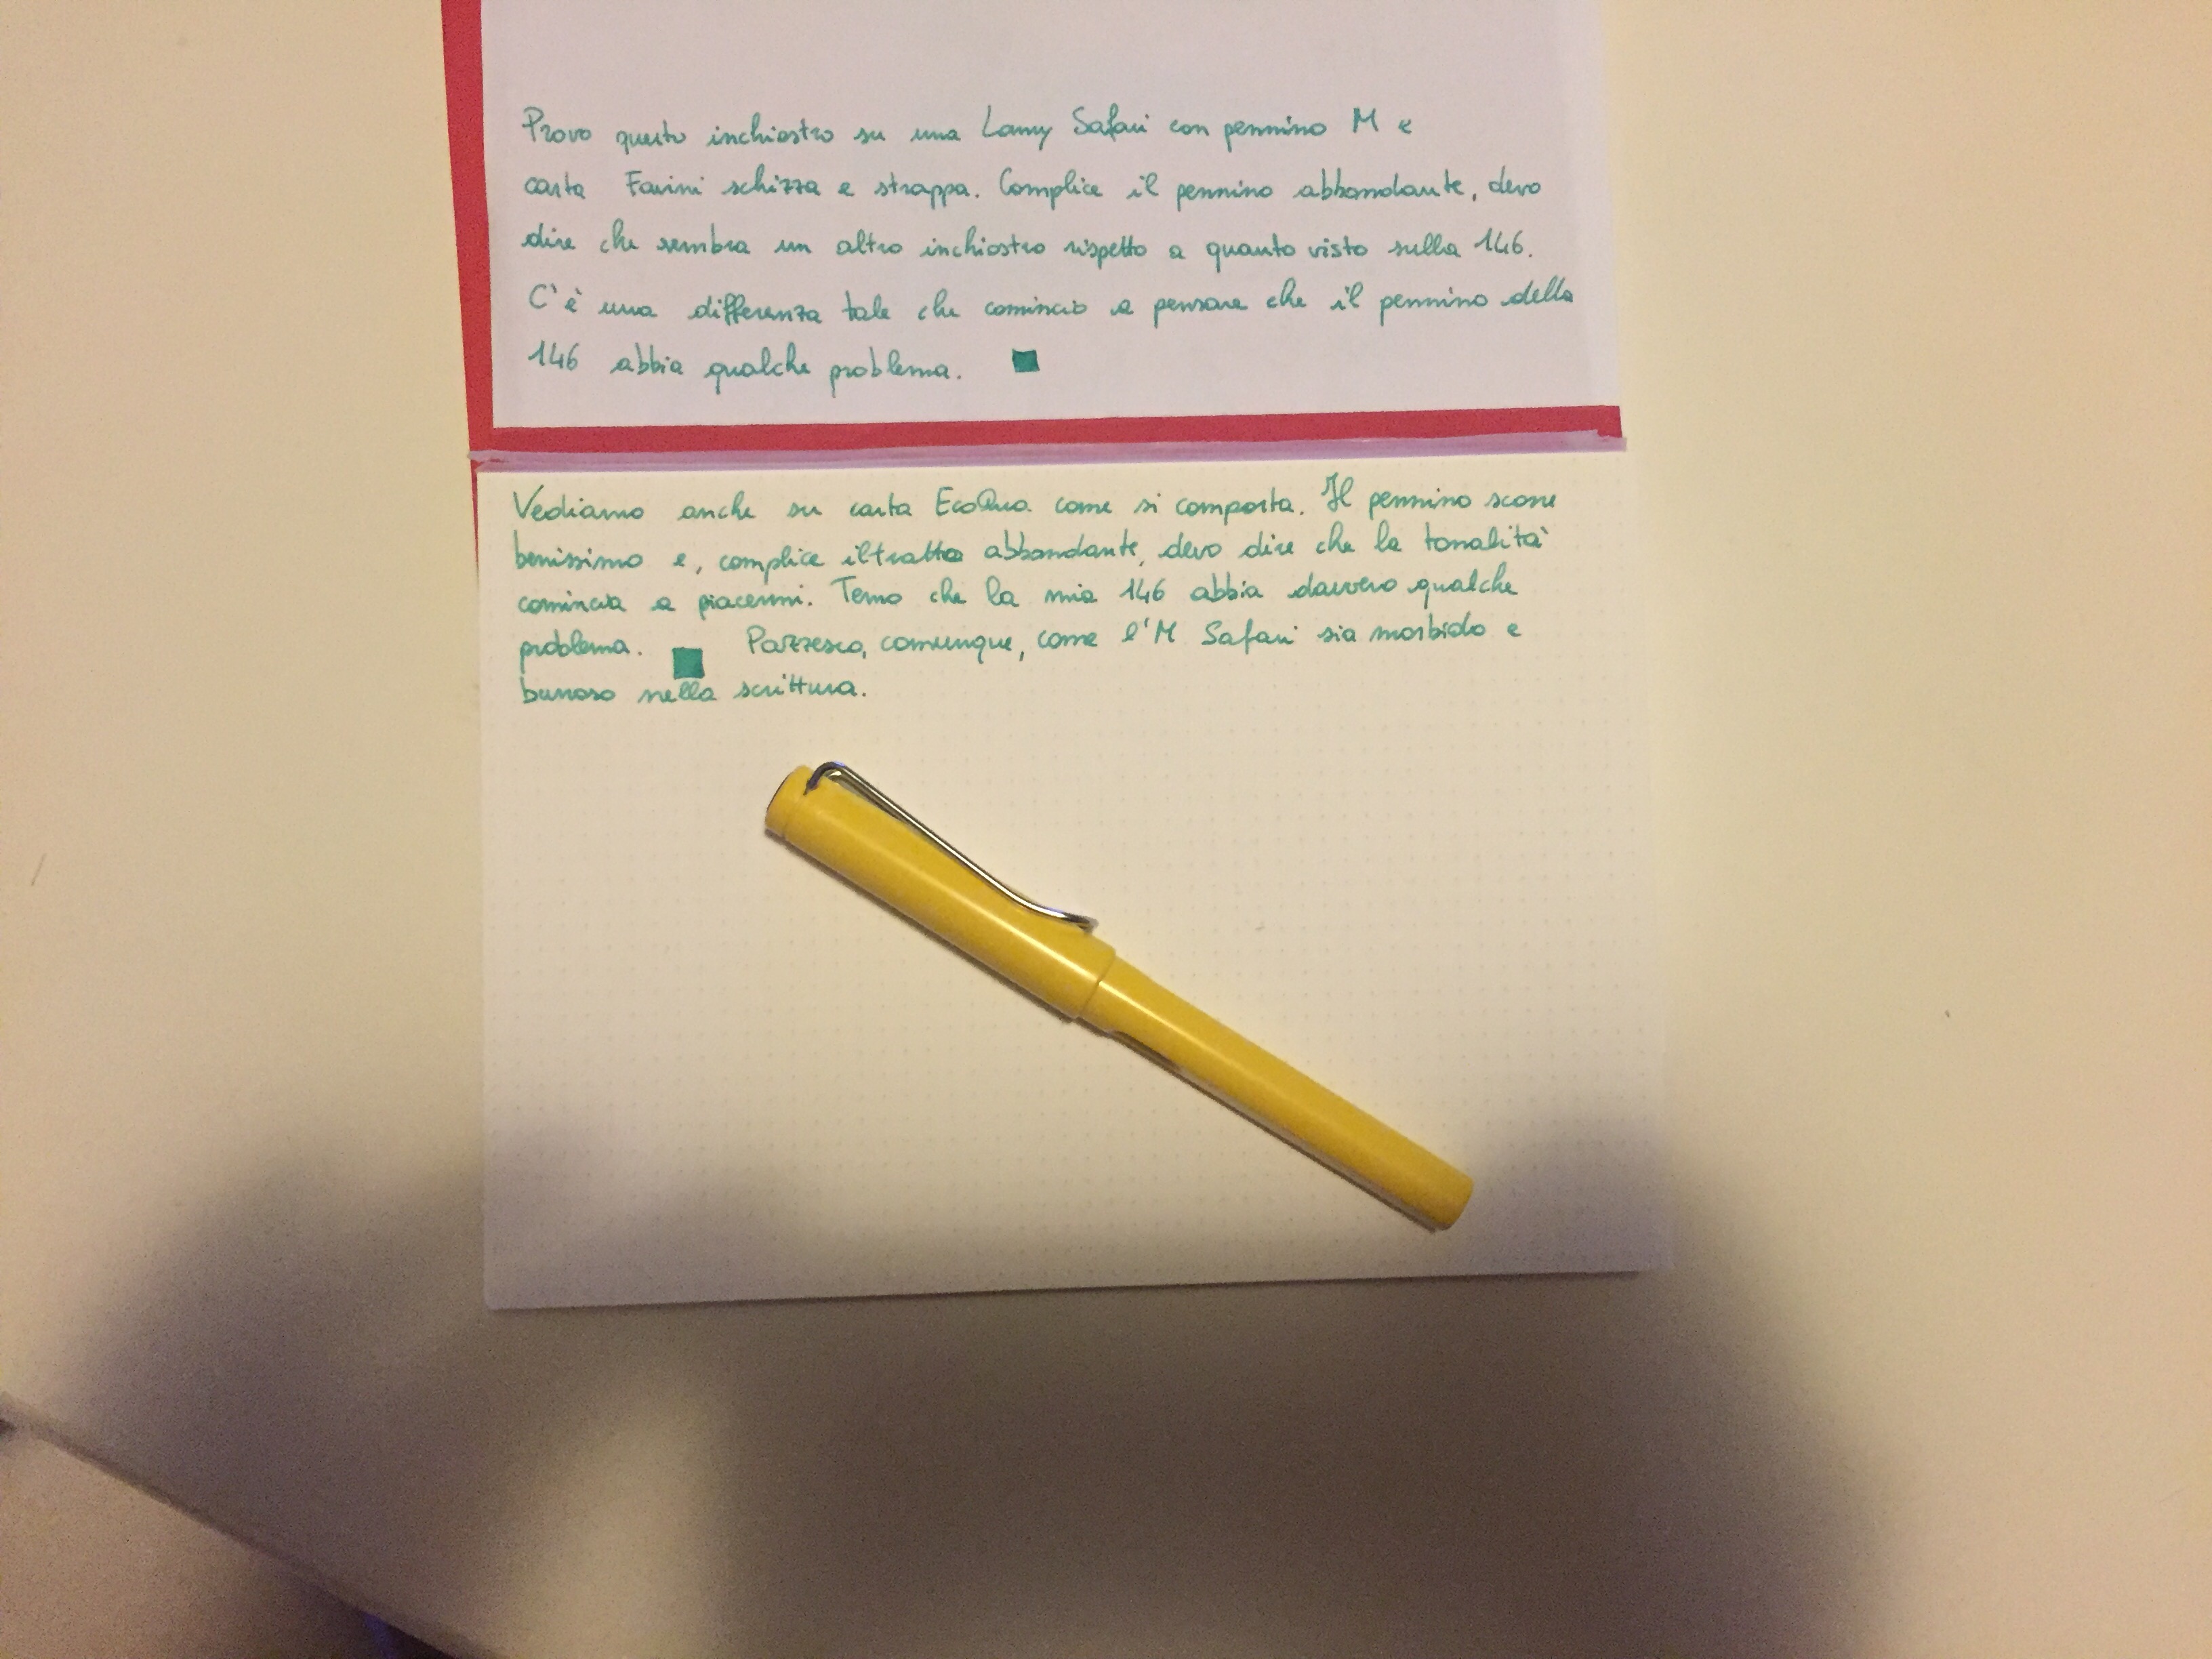 Provo questo inchiostro su una Lamy Safari con pennino M e
carta Favini schizza e strappa. Complice il pennino abbondante, devo
dire che sembra un altro inchiostro rispetto a quanto visto sulla 146.
C'è una differenza tale che comincio a pensare che il pennino della
146 abbia qualche problema.
Vediamo anche su carta EcoQua come si comporta. Il pennino scorre
benissimo e, complice il tratto abbondante, devo dire che la tonalità
comincia a piacermi. Temo che la mia 146 abbia davvero qualche
problema. Pazzesco, comunque, come l'M Safari sia morbido e
burroso nella scrittura.